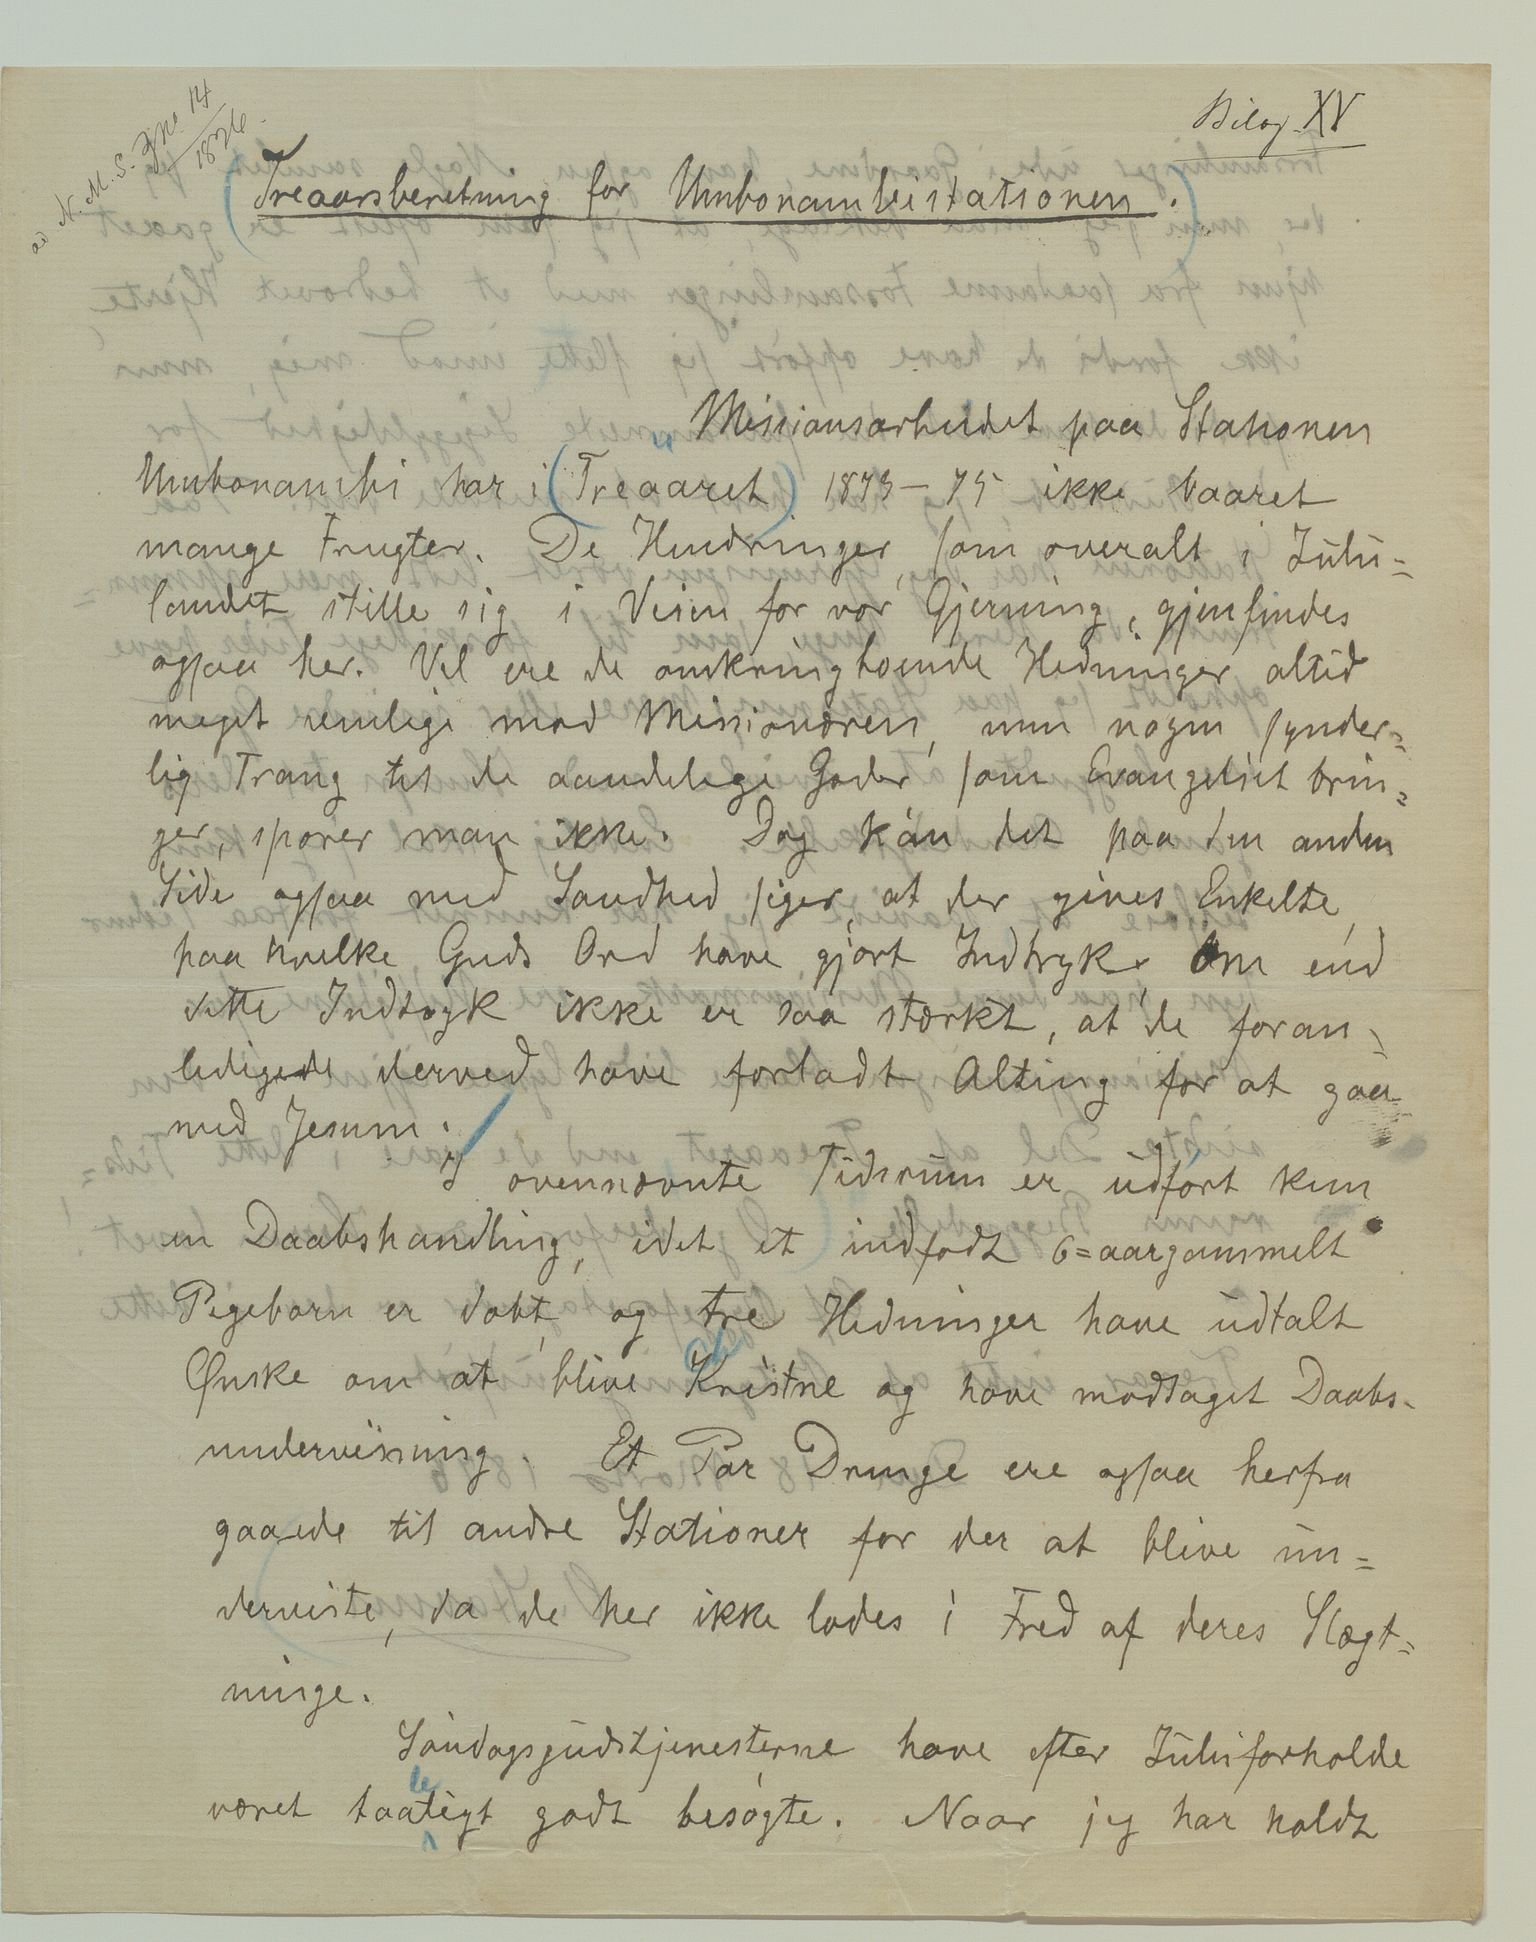 ad N. M. S. Jno 14/1876.
Bilag XV
Treaarsberetning for Umbonambistationen.
Missionsarbeidet paa Stationen
Umbonambi har i Treaaret 1873-75 ikke baaret
mange Frugter. De Hindringer, som overalt i Zulu=
landet stille sig i Veien for vor Gjerning, gjenfindes
ogsaa her. Vel ere de omkringboende Hedninger altid
meget venlige mod Missionæren, men nogen synder=
lig Trang til de aandelige Goder, som Evangeliet brin=
ger, sporer man ikke. Dog kan det paa den anden
Side ogsaa med Sandhed siges, at der gives Enkelte,
paa hvilke Guds Ord have gjort Indtryk. Om end
dette Indtryk ikke er saa stærkt, at de foran=
ledigede derved have forladt Alting for at gaa
med Jesum.
I ovennævnte Tidsrum er udført kun
en Daabshandling, idet et indfødt 6=aargammelt
Pigebarn er døbt, og tre Hedninger have udtalt
Ønske om at blive Kristne og have modtaget Daabs-
undervisning. Et Par Drenge ere ogsaa herfra
gaaede til andre Stationer for der at blive un=
derviste, da de her ikke lodes i Fred af deres Slægt=
ninge.
Søndagsgudstjenesterne have efter Zuluforholde
været taaleligt godt besøgte. Naar jeg har holdt